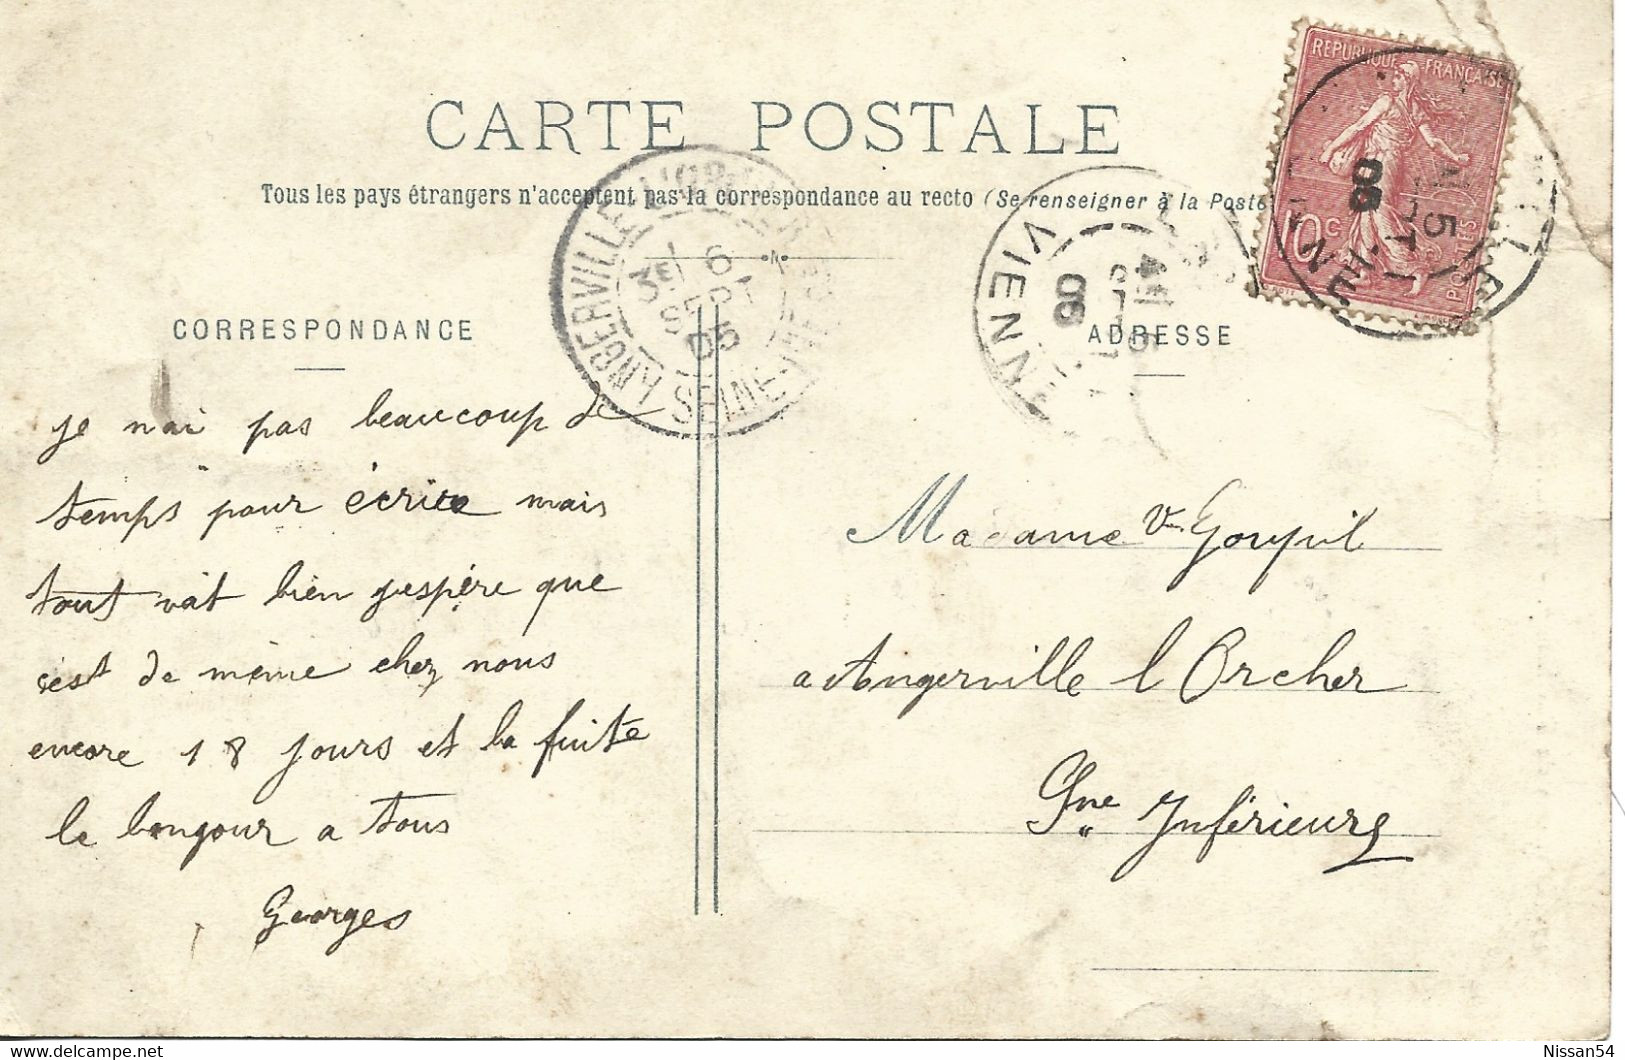 CARTE POSTALE
Tous les pays étrangers n'acceptent pas la correspondance au recto (Se renseigner à la Poste
REPUBLIQUE FRANÇAISE
10c
POSTES
ANGERVILLE
3E 6
SEPT
05
SEINE-INFRE
VIENNE
CORRESPONDANCE
ADRESSE
je nai pas beaucoup de
temps pour écrire mais
tout vat bien jespère que
cest de même chez nous
encore 18 jours et la fuite
le bongour a tous
Georges
Madame Ve Goupil
a Angerville l Orcher
Sne Inférieure
Nissan54